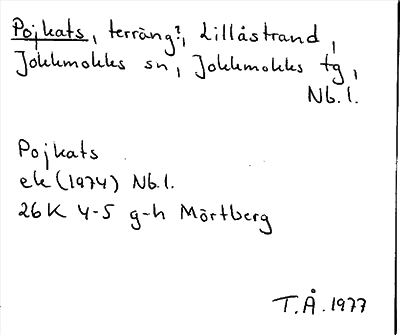 Pojkats, terräng?, Lillåstrand,
Jokkmokks sn, Jokkmokks tg,
Nb.l.
Pojkats
ek (1974) Nb.l.
26K 4-5 g-h Mörtberg
T.Å. 1977